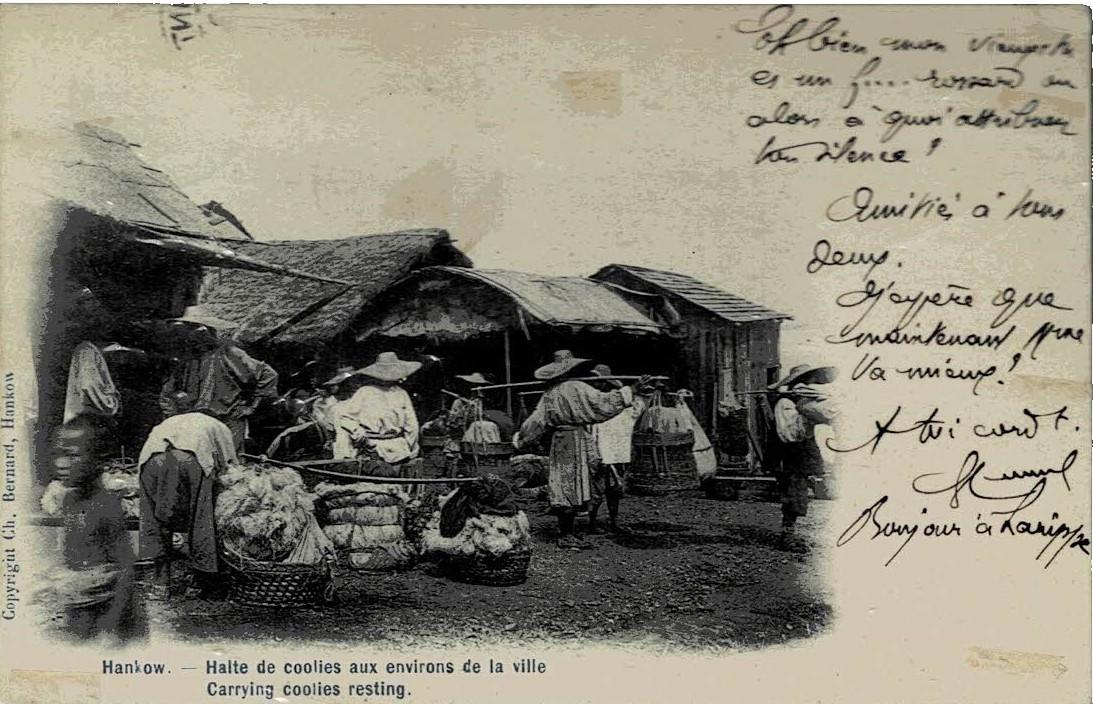 Eh bien mon vieux tu
es un f.... rossard ou
alors à quoi attribuer
ton silence ?
Amitiés à tous
deux.
J'espère que
maintenant Mme
va mieux ?
A toi cordt.
Bonjour à
Copyright Ch. Bernard, Hankow
Hankow. — Halte de coolies aux environs de la ville
Carrying coolies resting.